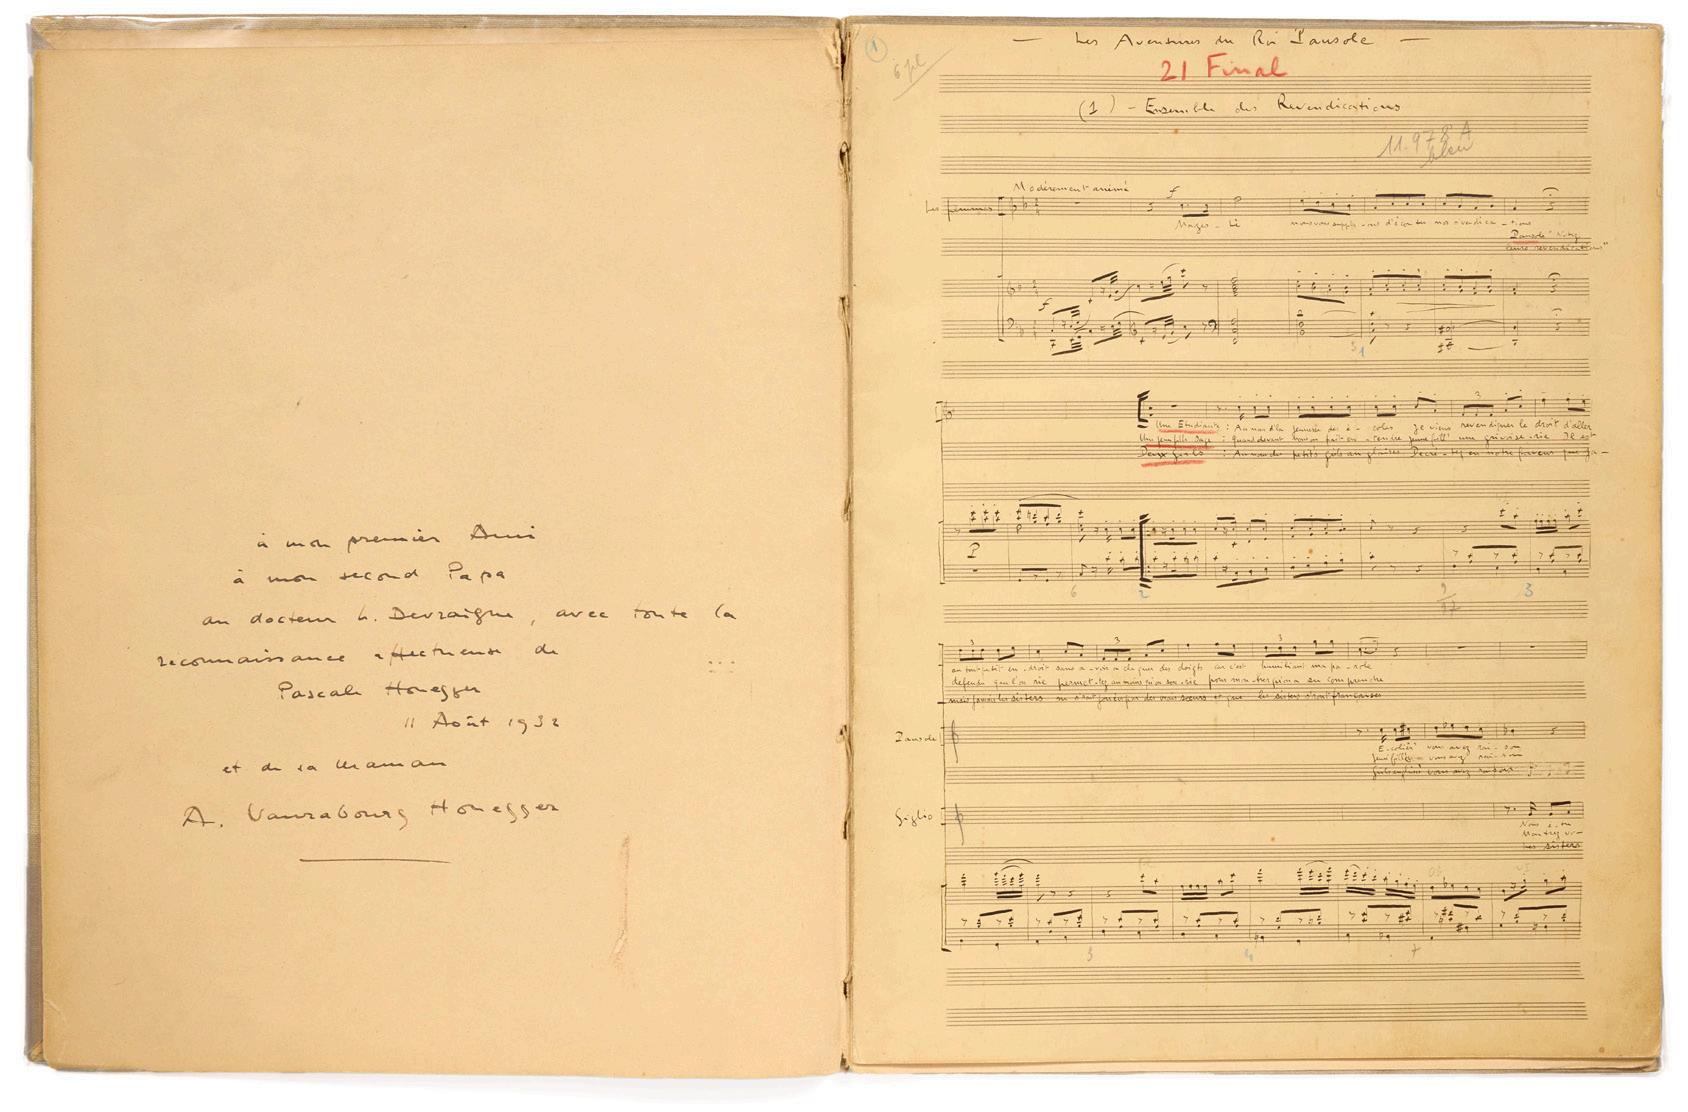 à mon premier Ami
à mon second Papa
au docteur L. Devraigne, avec toute la
reconnaissance affectueuse de
Pascale Honegger
11 Août 1932
et de sa Maman
A. Vaurabourg Honegger
1
6 pl
— Les Aventures du Roi Pausole —
21 Final
(1) - Ensemble des Revendications
11.978 A
bleu
Modérément animé
f
Les femmes
Majes - té nous vous suppli - ons d'écouter nos revendica - tions
Pausole
leurs revendications"
f
1
Une Etudiante : Au nom d'la jeunesse des é - coles je viens revendiquer le droit d'aller
Une jeune fille sage : Quand devant nous on fait en - tendre jeune fill' une grivoise - rie Il est
Deux girls : Au nom des petit's girls anglaises Décré - tez en notre faveur que ja -
P
6 2 3
3 3 3
au tout petit en - droit sans a - voir à claquer des doigts car c'est humiliant ma pa - role
défendu que l'on rie permet - tez au moins qu'on sou - rie pour montrer qu'on a su comprendre
mais les sisters n' soeurs et que les sisters soient françaises
Pausole
E - colièr' vous avez rai - son
Jeun' fille vous avez rai - son
Girls anglais' vous avez raison
Giglio
Montrez
Les sisters
3 4 7